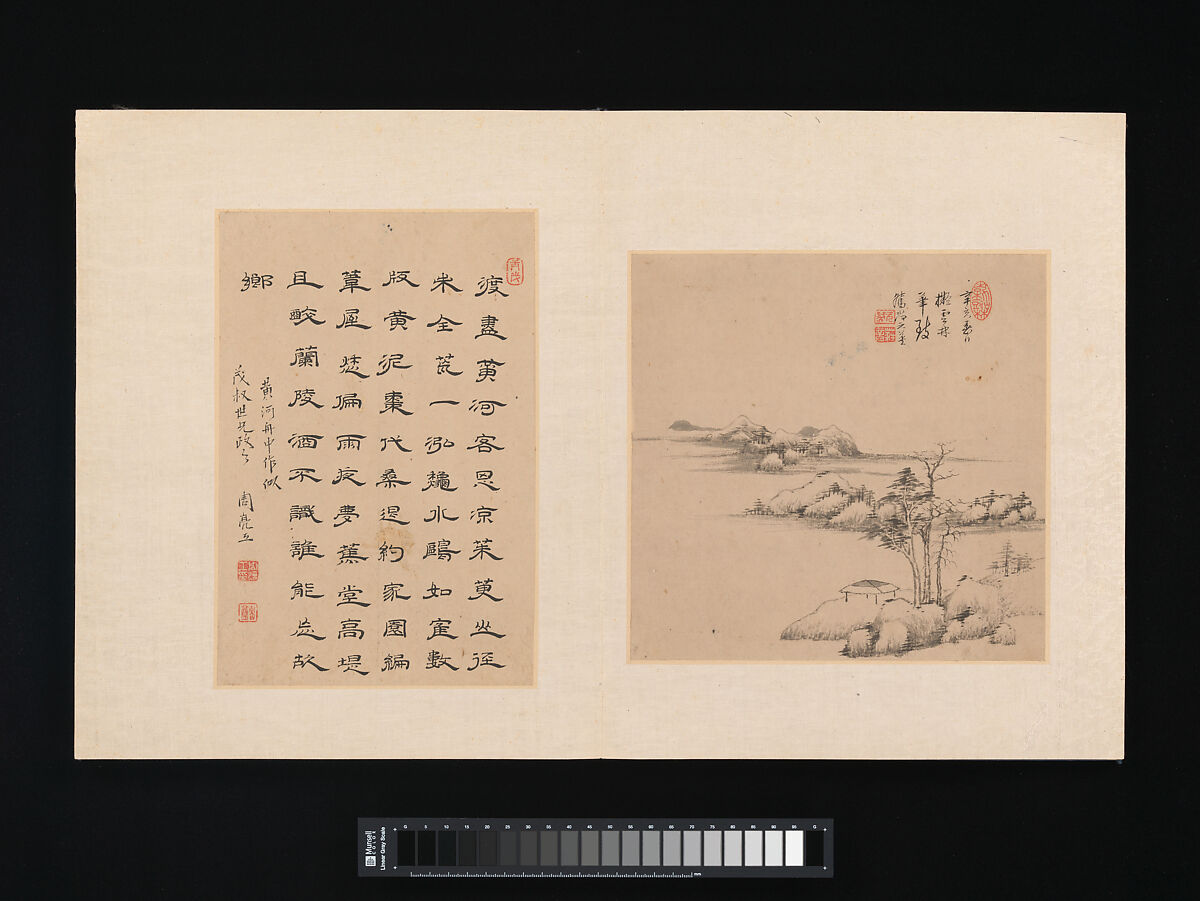 辛亥春日
擬雲林
筆致
渡盡黄河客思凉茱萸之徑
未全荒一泓龝水鷗如雀數
版黄泥棗代桑退約家園編
葦屋愁偏雨夜夢蕉堂高堤
且醉蘭陵酒不識誰能忘故
鄉
黄河舟中作似
茂叔世兄政之 周亮工
Munsell COLOR
Linear Gray Scale
G 5 10 15 20 25 30 35 40 45 50 55 60 65 70 75 80 85 90 95 G
mm